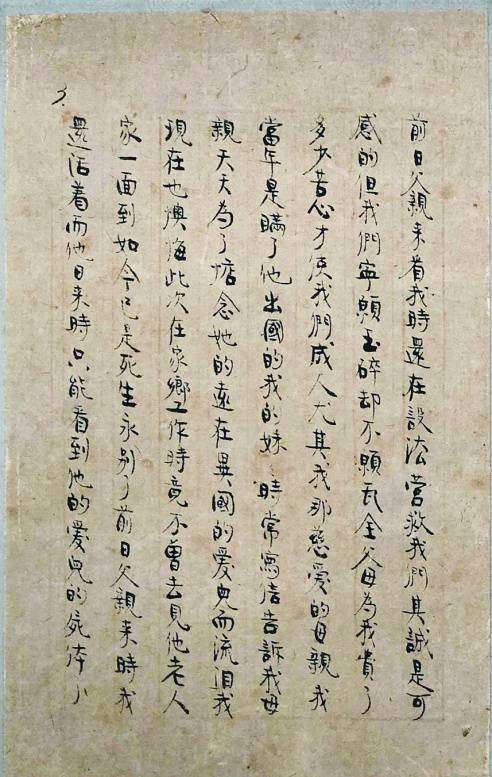 前日父親来看我時還在設法營救我們其誠是可
感的但我們寧願玉碎却不願瓦全父母為我費了
多少苦心才使我們成人尤其我那慈愛的母親我
當年是瞞了他出國的我的妹々時常寫信告訴我母
親天天為了惦念她的遠在異國的愛兒而流泪我
現在也懊悔此次在家鄉工作時竟不曾去見他老人
家一面到如今已是死生永别了前日父親来時我
還活着而他日来時只能看到他的愛兒的屍体
3.